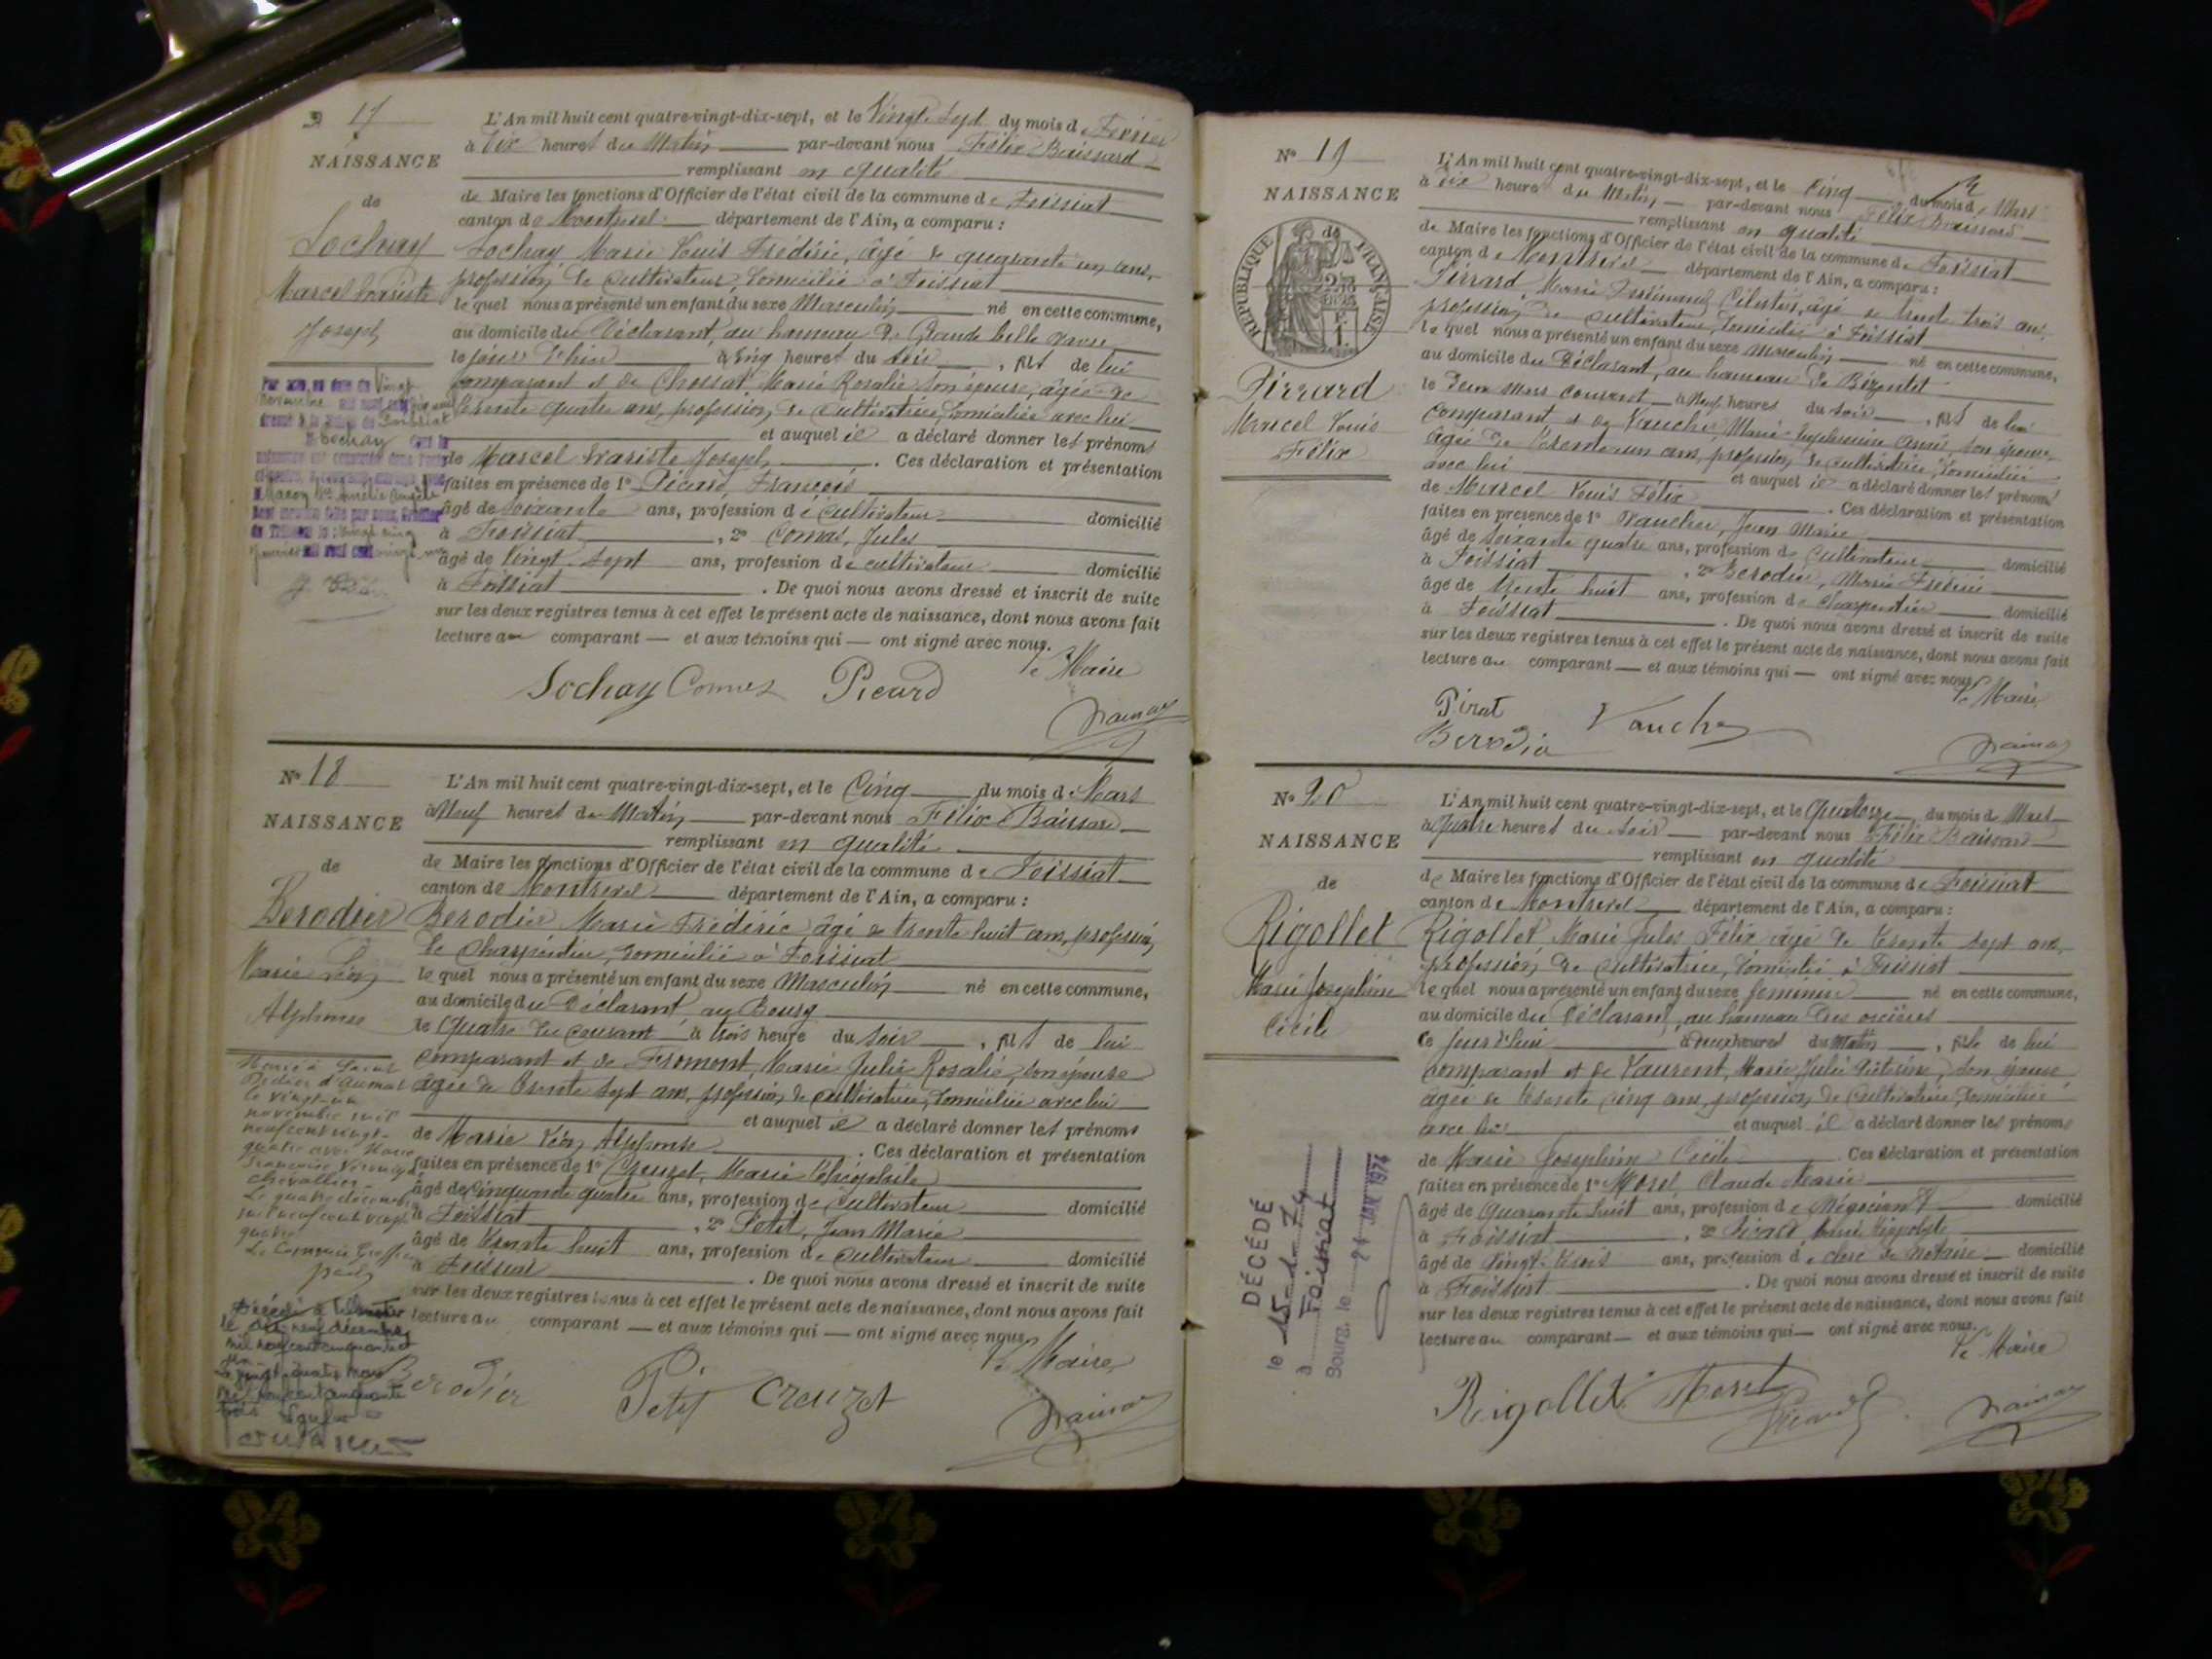 N° 17
NAISSANCE
de
Sochay
Marcel Evariste
Joseph
L'An mil huit cent quatre-vingt-dix-sept, et le Vingt Sept du mois de Février
à Dix heures du Matin par-devant nous Félix Baissard
remplissant en qualité
de Maire les fonctions d'Officier de l'état civil de la commune de Foissiat
canton de Montrevel département de l'Ain, a comparu :
Sochay Marie Louis Frédéric, âgé de quarante un ans,
profession de cultivateur, domicilié à Foissiat
le quel nous a présenté un enfant du sexe Masculin né en cette commune,
au domicile du Déclarant, au hameau de Grande
à Cinq heures du soir, fils de lui
comparant et de Chossat Marie Rosalie son épouse, âgée de
trente quatre ans, profession de cultivatrice, domiciliée avec lui
et auquel il a déclaré donner les prénoms
de Marcel Evariste Joseph. Ces déclaration et présentation
faites en présence de 1° Picard, François
âgé de soixante ans, profession de cultivateur domicilié
à Foissiat, 2° Comas, Jules
âgé de Vingt-Sept ans, profession de cultivateur domicilié
à Foissiat. De quoi nous avons dressé et inscrit de suite
sur les deux registres tenus à cet effet le présent acte de naissance, dont nous avons fait
lecture au comparant et aux témoins qui ont signé avec nous.
Le Maire
Sochay Picard
N° 18
NAISSANCE
de
Berodier
Marie Léon
Alphonse
L'An mil huit cent quatre-vingt-dix-sept, et le Cinq du mois de Mars
à Neuf heures du Matin par-devant nous Félix Baissard
remplissant en qualité
de Maire les fonctions d'Officier de l'état civil de la commune de Foissiat
canton de Montrevel département de l'Ain, a comparu :
Berodier Marie Frédéric âgé de trente huit ans, profession
de Charpentier, domicilié à Foissiat
le quel nous a présenté un enfant du sexe Masculin né en cette commune,
au domicile du Déclarant au Bourg
le Quatre du courant à trois heure du soir, fils de lui
comparant et de Fromont, Marie Julie Rosalie, son épouse
âgée de trente sept ans, profession de cultivatrice, domiciliée avec lui
et auquel il a déclaré donner les prénoms
de Marie Léon Alphonse. Ces déclaration et présentation
faites en présence de 1° Creuzet, Marie Théophile
âgé de cinquante quatre ans, profession de cultivateur domicilié
à Foissiat, 2° Petit, Jean Marie
âgé de trente huit ans, profession de cultivateur domicilié
à Foissiat. De quoi nous avons dressé et inscrit de suite
sur les deux registres tenus à cet effet le présent acte de naissance, dont nous avons fait
lecture au comparant et aux témoins qui ont signé avec nous.
Le Maire
Berodier Petit Creuzet
le vingt-un
novembre mil
neuf cent vingt-
quatre avec Marie
Chevallier
Le quatre décembre
N° 19
NAISSANCE
RÉPUBLIQUE FRANÇAISE
Pirrard
Marcel Louis
Félix
L'An mil huit cent quatre-vingt-dix-sept, et le Cinq du mois de Mars
à Dix heure du Matin par-devant nous Félix Baissard
remplissant en qualité
de Maire les fonctions d'Officier de l'état civil de la commune de Foissiat
canton de Montrevel département de l'Ain, a comparu :
Pirrard Marie Ferdinand Célestin, âgé de trente trois ans
profession de cultivateur, domicilié à Foissiat
le quel nous a présenté un enfant du sexe Masculin né en cette commune,
au domicile du Déclarant, au hameau de
le Deux Mars courant à Neuf heures du soir, fils de lui
comparant et de Vaucher Marie son épouse,
âgée de trente un ans, profession de cultivatrice, domiciliée
avec lui et auquel il a déclaré donner les prénoms
de Marcel Louis Félix. Ces déclaration et présentation
faites en présence de 1° Vaucher, Jean Marie
âgé de soixante quatre ans, profession de cultivateur domicilié
à Foissiat, 2° Berodier, Marie Frédéric
âgé de trente huit ans, profession de charpentier domicilié
à Foissiat. De quoi nous avons dressé et inscrit de suite
sur les deux registres tenus à cet effet le présent acte de naissance, dont nous avons fait
lecture au comparant et aux témoins qui ont signé avec nous.
Le Maire
Pirat Vaucher
Berodier
N° 20
NAISSANCE
de
Rigollet
Marie Joséphine
Cécile
L'An mil huit cent quatre-vingt-dix-sept, et le Quatorze du mois de Mars
à Quatre heures du soir par-devant nous Félix Baissard
remplissant en qualité
de Maire les fonctions d'Officier de l'état civil de la commune de Foissiat
canton de Montrevel département de l'Ain, a comparu :
Rigollet Marie Jules Félix âgé de trente sept ans,
profession de cultivatrice, domicilié à Foissiat
le quel nous a présenté un enfant du sexe féminin né en cette commune,
au domicile du Déclarant, au hameau des
ce jour d'hui à deux heures du Matin, fille de lui
comparant et de Laurent, Marie Julie son épouse
âgée de trente cinq ans, profession de cultivatrice, domiciliée
avec lui et auquel il a déclaré donner les prénoms
de Marie Joséphine Cécile. Ces déclaration et présentation
faites en présence de 1° Morel, Claude Marie
âgé de quarante huit ans, profession de Négociant domicilié
à Foissiat, 2° Picard, Hippolyte
âgé de Vingt-trois ans, profession de clerc de notaire domicilié
à Foissiat. De quoi nous avons dressé et inscrit de suite
sur les deux registres tenus à cet effet le présent acte de naissance, dont nous avons fait
lecture au comparant et aux témoins qui ont signé avec nous.
Le Maire
Rigollet Morel Picard
DÉCÉDÉ
le 15-1-74
à Foissiat
Bourg, le 24 JAN 1974